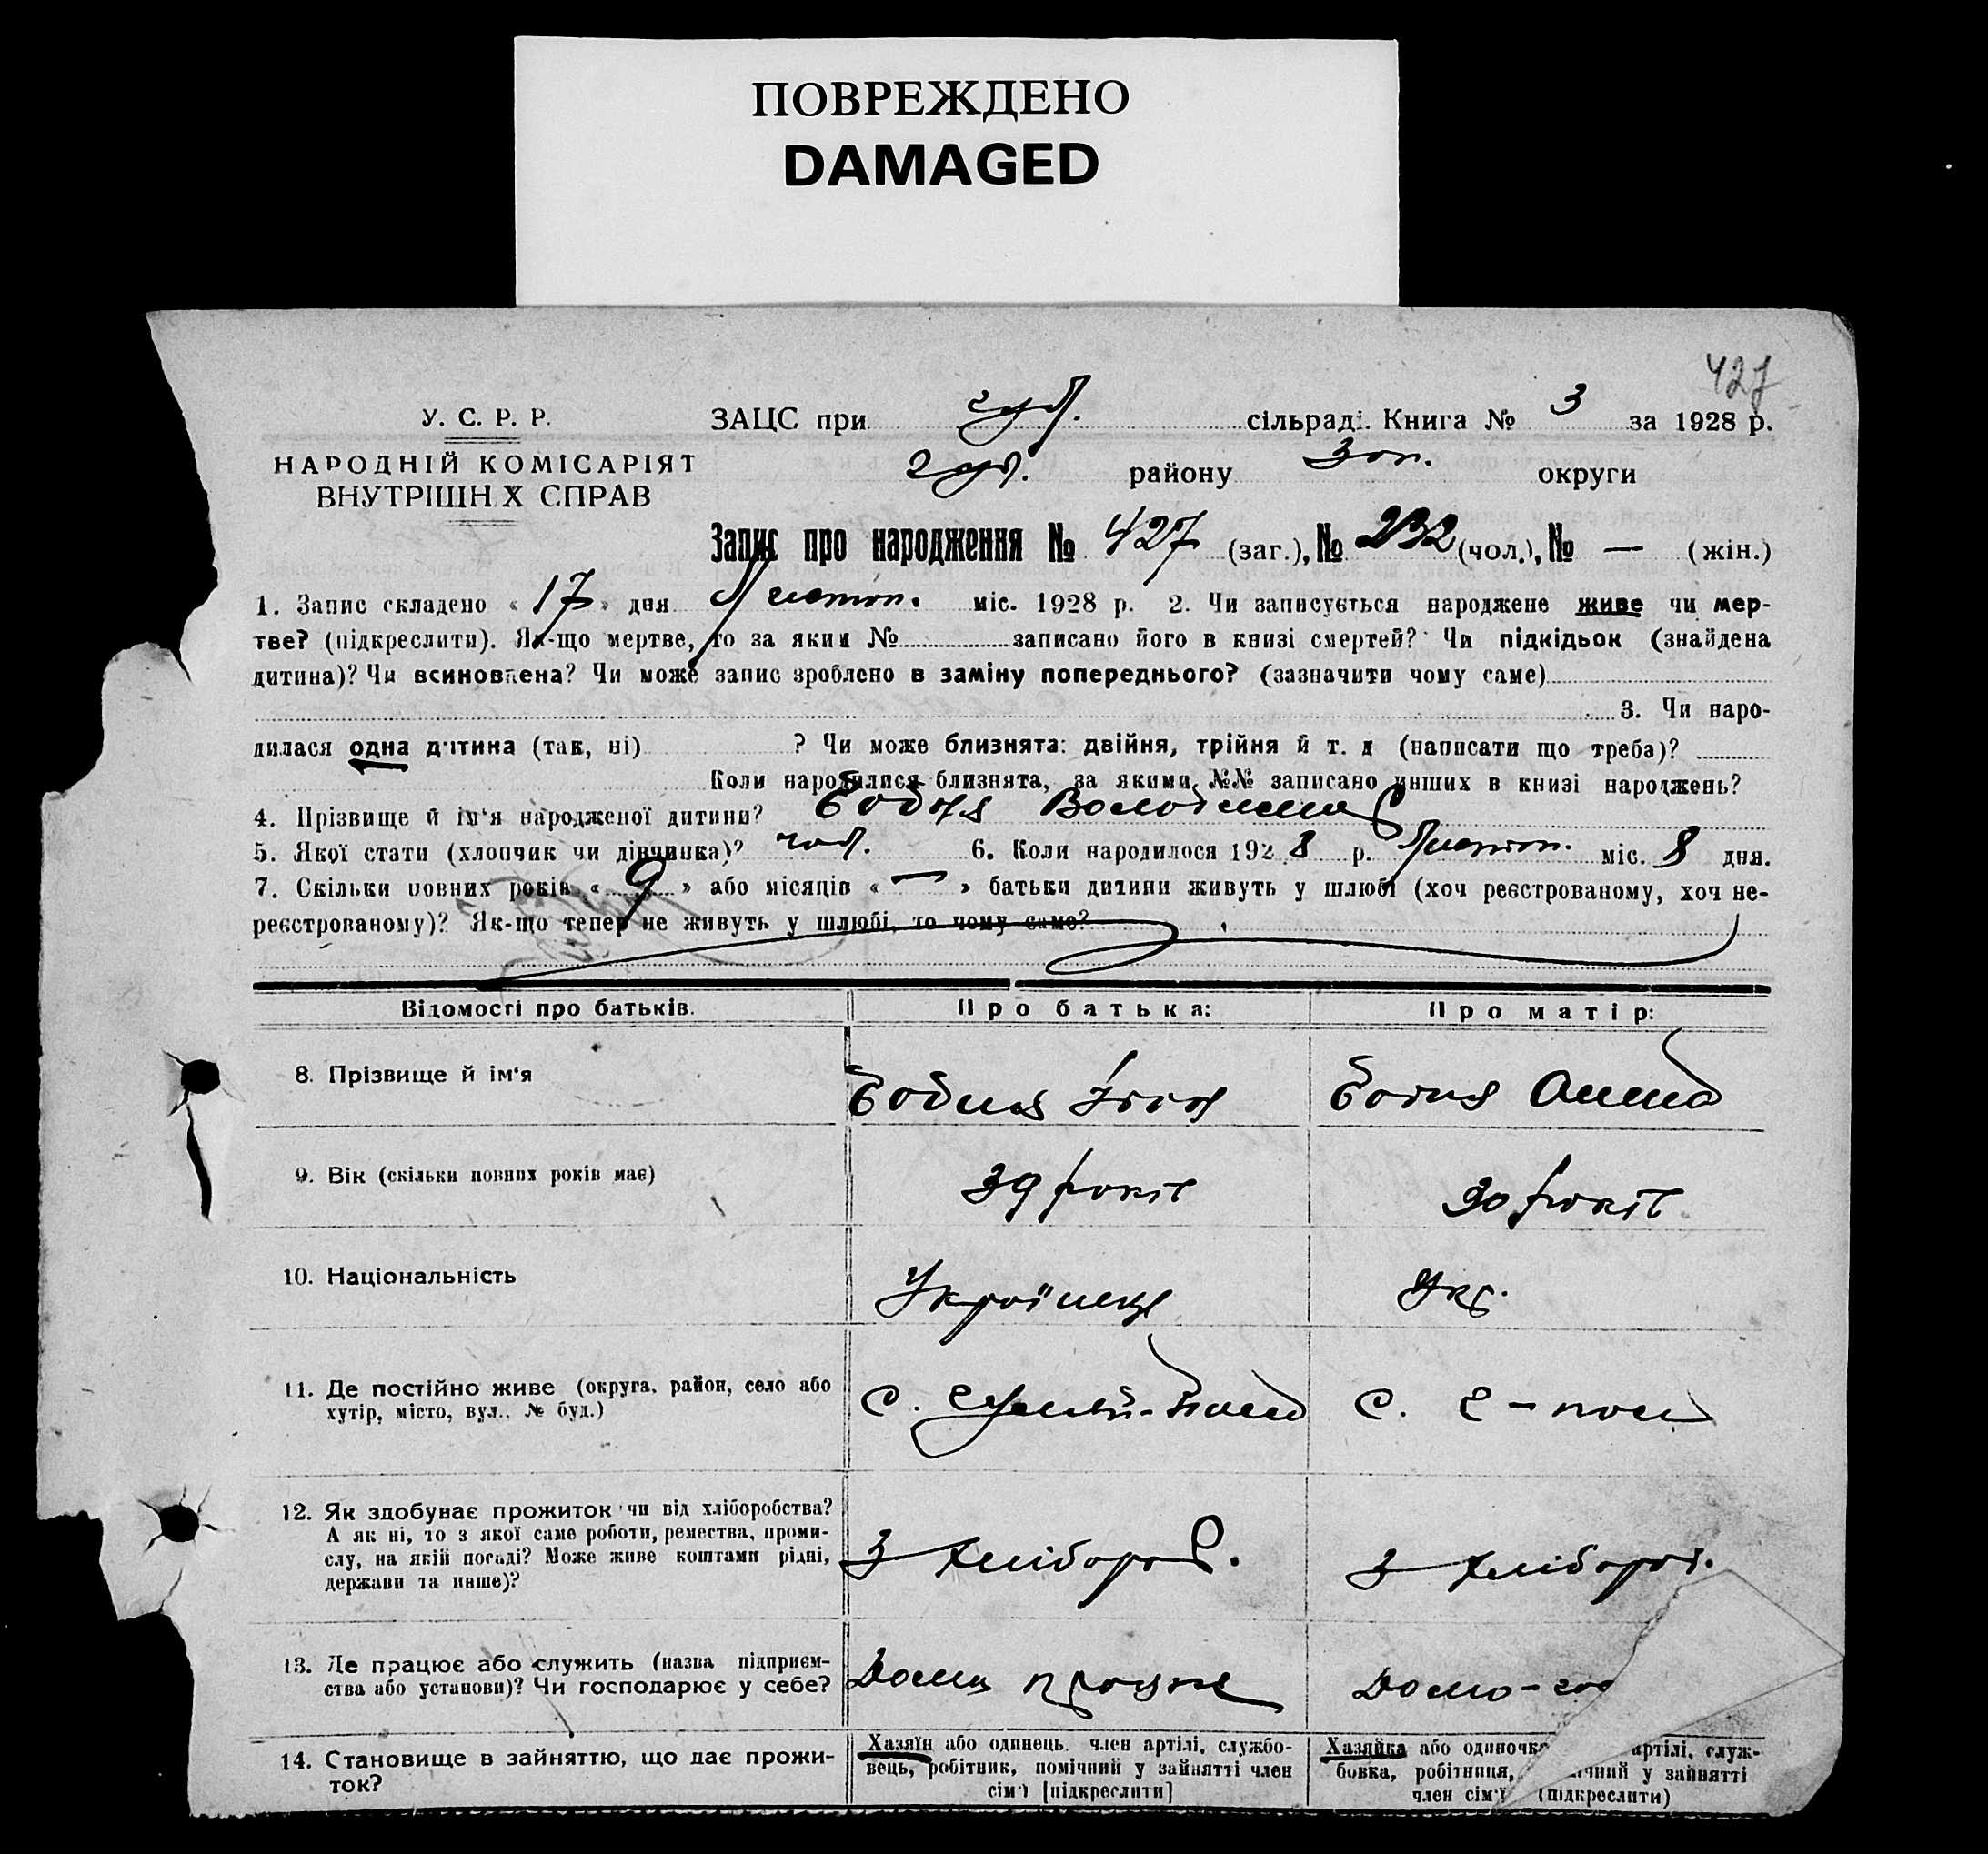 ПОВРЕЖДЕНО
DAMAGED
427
У. С. Р. Р.
НАРОДНІЙ КОМІСАРІЯТ
ВНУТРІШН Х СПРАВ
ЗАЦС при сільраді. Книга № 3 за 1928 р.
району округи
Запис про народження № 427 (заг.), № 232 (чол.), № — (жін.)
1. Запис складено « 17 » дня Листоп. міс. 1928 р. 2. Чи записується народжене живе чи мер-
тве? (підкреслити). Як-що мертве, то за яким № записано його в книзі смертей? Чи підкідьок (знайдена
дитина)? Чи всиновлена? Чи може запис зроблено в заміну попереднього? (зазначити чому саме)
3. Чи наро-
дилася одна дитина (так, ні) ? Чи може близнята: двійня, трійня й т. д (написати що треба)?
Коли народилися близнята, за якими №№ записано инших в книзі народжень?
4. Прізвище й ім'я народженої дитини? Володимир
5. Якої стати (хлопчик чи дівчинка)? чол. 6. Коли народилося 192 8 р. Листоп. міс. 8 дня.
7. Скільки повних років « 9 » або місяців « — » батьки дитини живуть у шлюбі (хоч реєстрованому, хоч не-
реєстрованому)? Як-що тепер не живуть у шлюбі, то чому саме?
Відомості про батьків. Про батька: Про матір:
8. Прізвище й ім'я Іван Ганна
9. Вік (скільки повних років має) 39 років 30 років
10. Національність Українець Укр.
11. Де постійно живе (округа, район, село або
хутір, місто, вул.. № буд.) с. Гуляй-Поле с. Г-поле
12. Як здобуває прожиток чи від хліборобства?
А як ні, то з якої саме роботи, ремества, проми-
слу, на якій посаді? Може живе коштами рідні,
держави та инше)? З хлібороб. З хлібороб.
13. Де працює або служить (назва підприєм-
ства або установи)? Чи господарює у себе? Дома працює Домо-гос
14. Становище в зайняттю, що дає прожи-
ток?
Хазяїн або одинець член артілі, службо-
вець, робітник, помічний у зайнятті член
сім'ї [підкреслити]
Хазяйка або одиночка артілі, служ-
бовка, робітниця, ічний у зайнятті
член сім'ї (підкреслити)